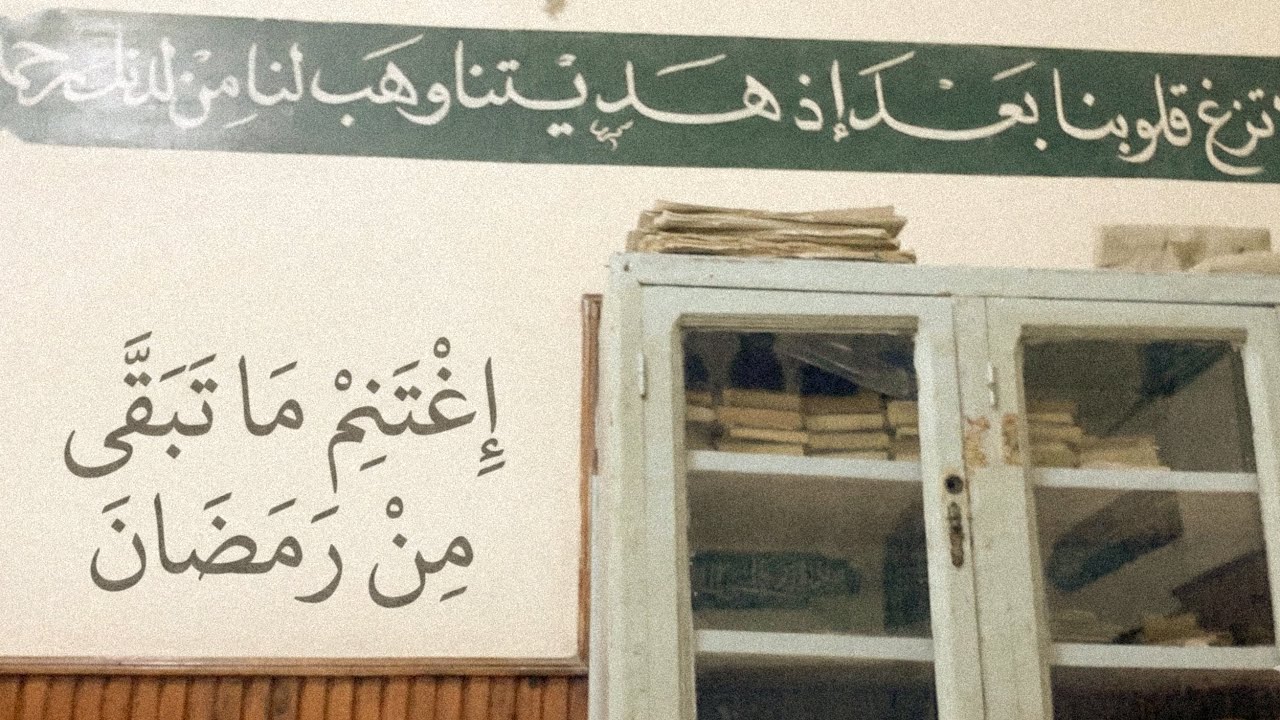 تزغ قلوبنا بَعْدَ إذ هَدَيْتنا وهَب لنا مِنْ لدنك رحما
إِغْتَنِمْ مَا تَبَقَّى
مِنْ رَمَضَانَ